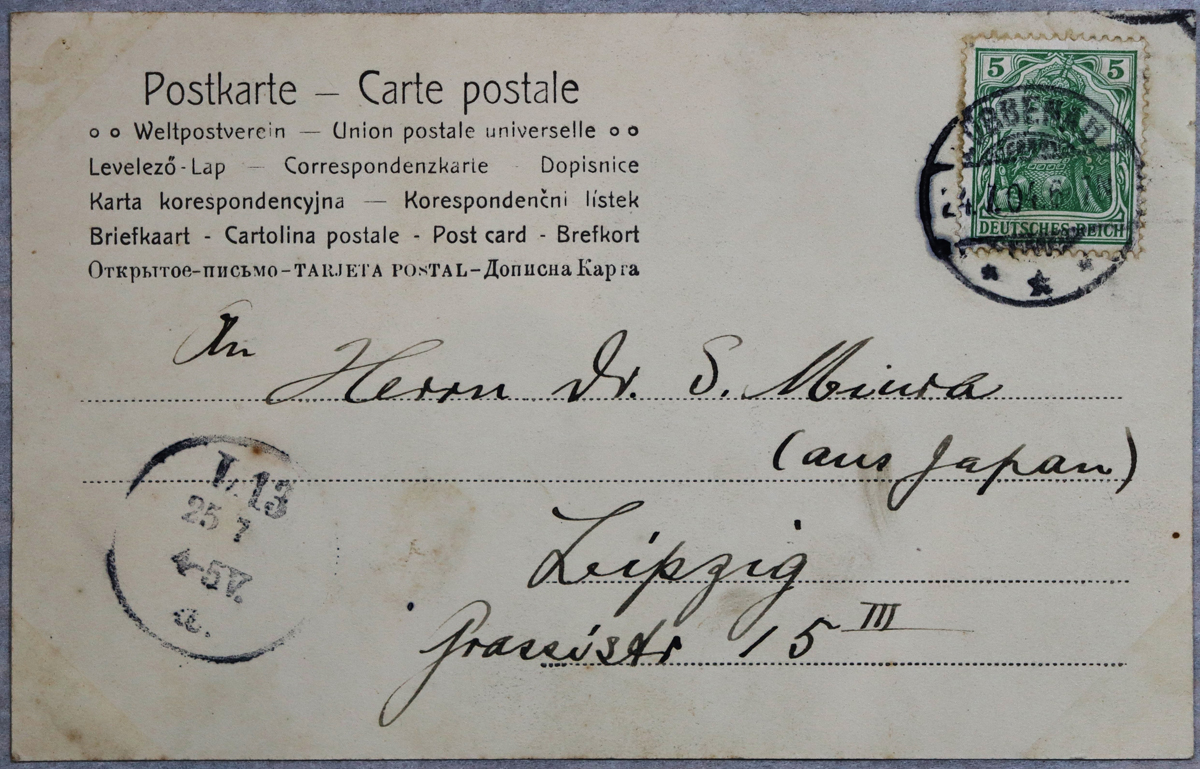 Postkarte — Carte postale
Weltpostverein — Union postale universelle
Levelező-Lap — Correspondenzkarte Dopisnice
Karta korespondencyjna — Korespondenčni lístek
Briefkaart - Cartolina postale - Post card - Brefkort
Открытое-письмо-TARJETA POSTAL-Дописна Карта
5 5
24.7.04.6
DEUTSCHES REICH
An
Herrn Dr. S. Miura
(aus Japan)
Leipzig
Grassistr 15 III
L.13
25 7
4-5V.
a.